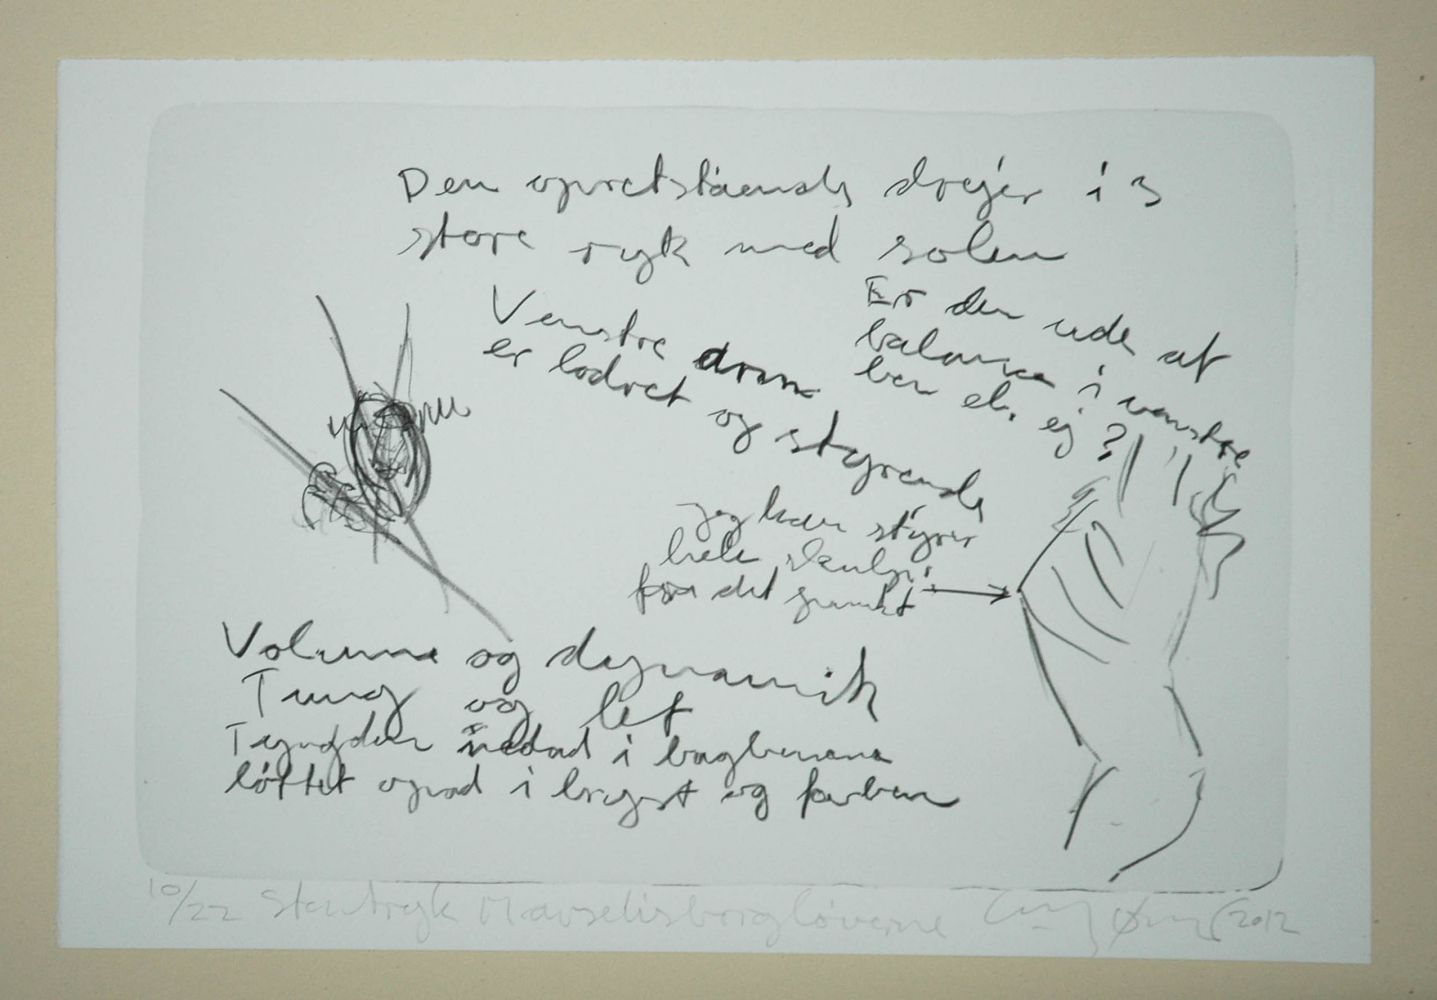 Den opretstående drejer i 3
store ryk med solen
Er den ude af
balance i venstre
ben el. ej ?
Venstre arm
er lodret og styrende
jeg kan styrer
hele skulpt.
fra det punkt
Volume og dynamik
Tung og let
Tyngden nedad i bagbenene
løftet opad i bryst og forben
10/22 Stentryk Marselisborgløverne 2012